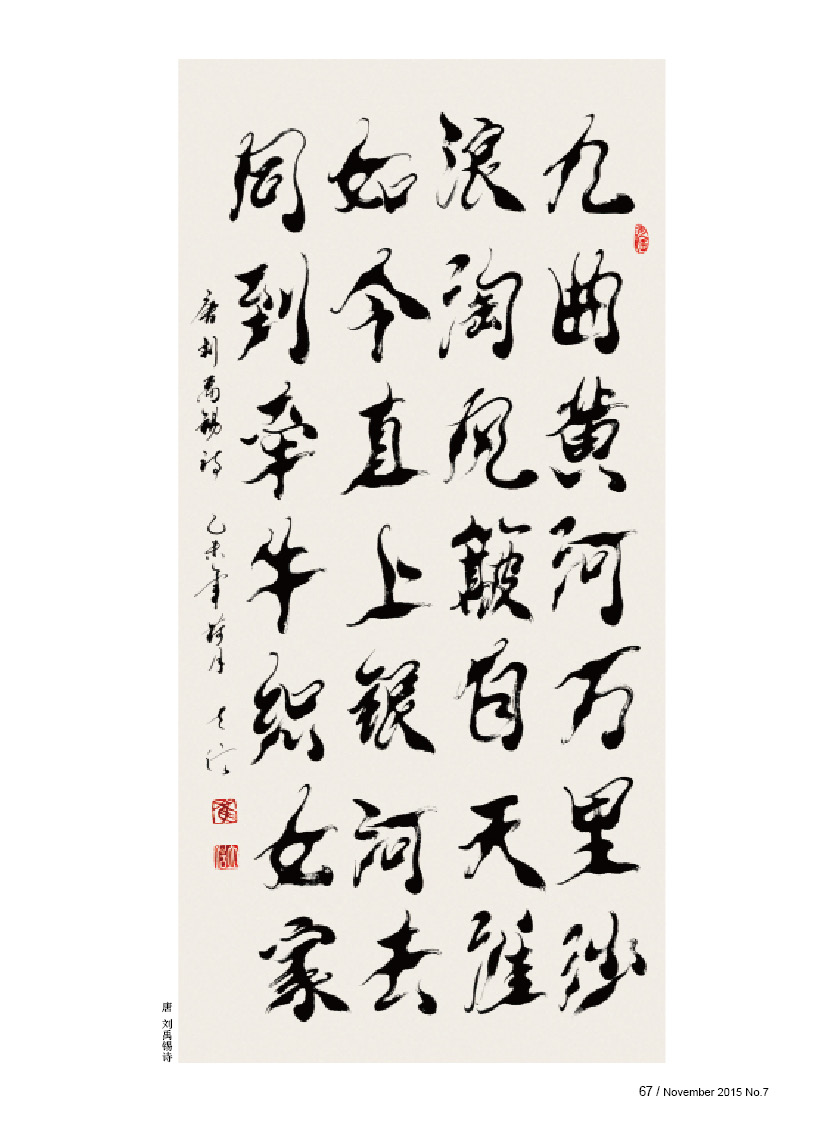 九曲黄河万里沙
浪淘风簸自天涯
如今直上银河去
同到牵牛织女家
唐刘禹锡诗 乙未年荷月
唐 刘禹锡诗
67 / November 2015 No.7